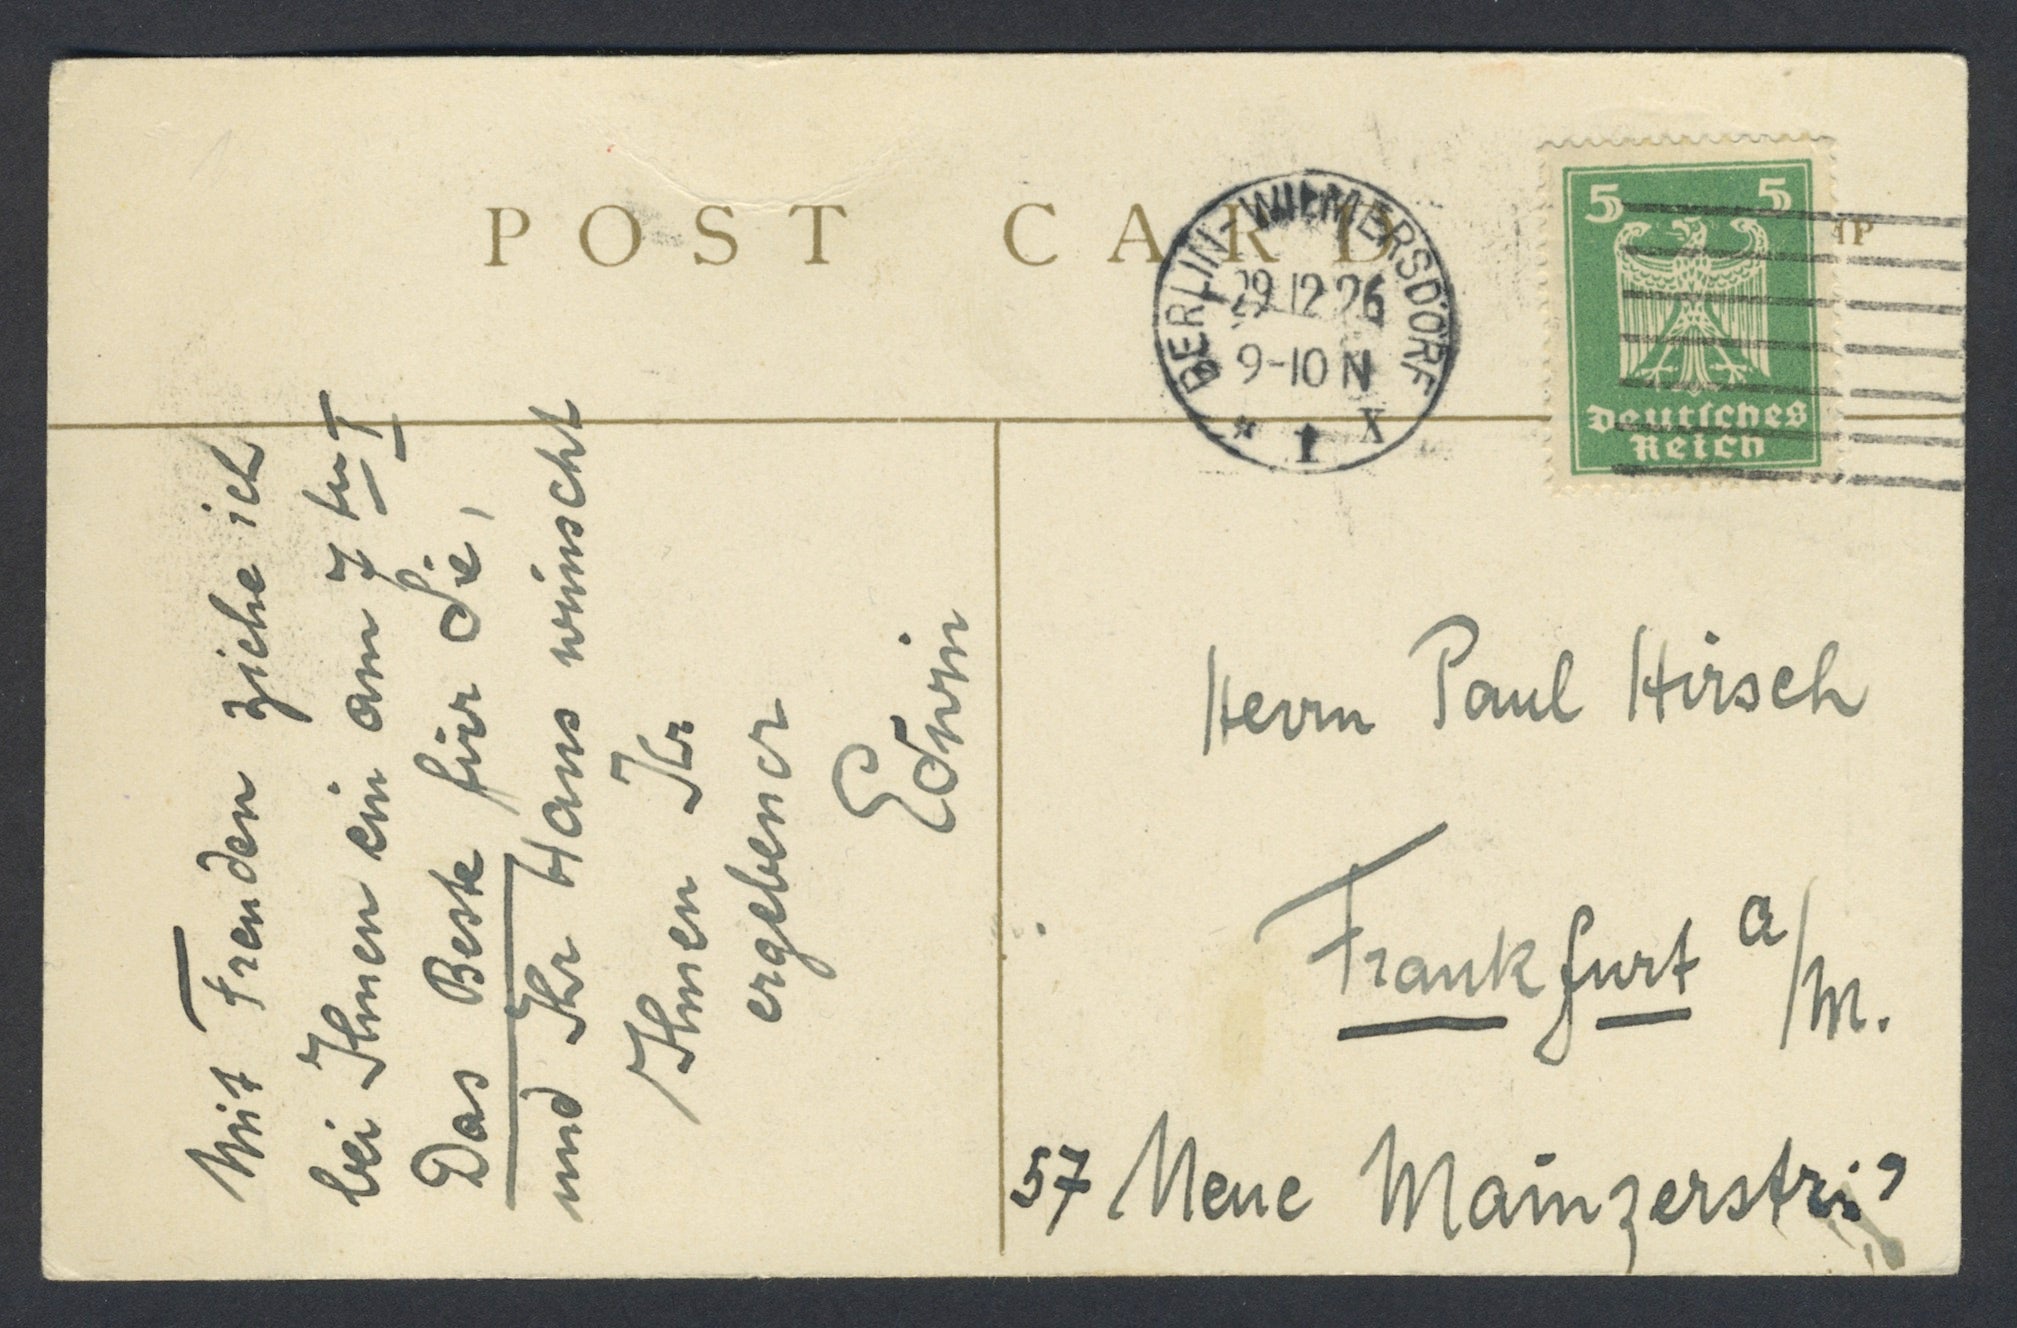 POST CARD
BERLIN-WILMERSDORF
29.12.26
9-10 N
* 1 X
5 5
Deutsches
Reich
MP
Mit Freuden ziehe ich
bei Ihnen ein am 7
Das Beste für Sie,
und Ihr Haus wünscht
Ihnen Ihr
ergebener
Edwin
Herrn Paul Hirsch
Frankfurt a/M.
57 Neue Mainzerstr.